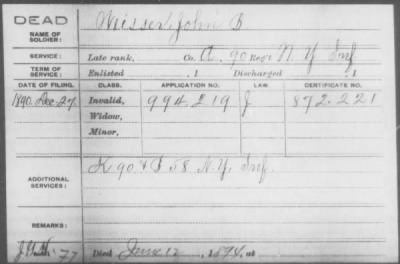 DEAD
NAME OF SOLDIER: Wisser, John B
SERVICE: Late rank, Co. A, 90 Reg't N. Y. Inf
TERM OF SERVICE: Enlisted , 1 Discharged , 1
DATE OF FILING. CLASS. APPLICATION NO. LAW. CERTIFICATE NO.
1890. Dec. 27. Invalid, 994.219 J 872.221
Widow,
Minor,
ADDITIONAL SERVICES: K 90 & I 58 N.Y. Inf.
REMARKS:
Died June 12, 1894, at